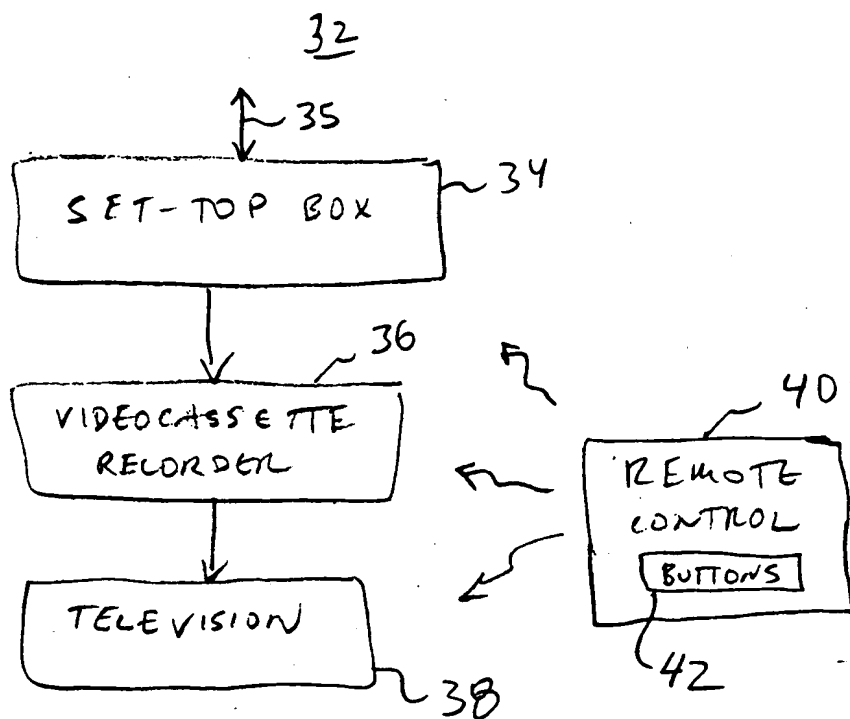 32
35
SET-TOP BOX
34
36
VIDEOCASSETTE
RECORDER
40
REMOTE
CONTROL
BUTTONS
42
TELEVISION
38